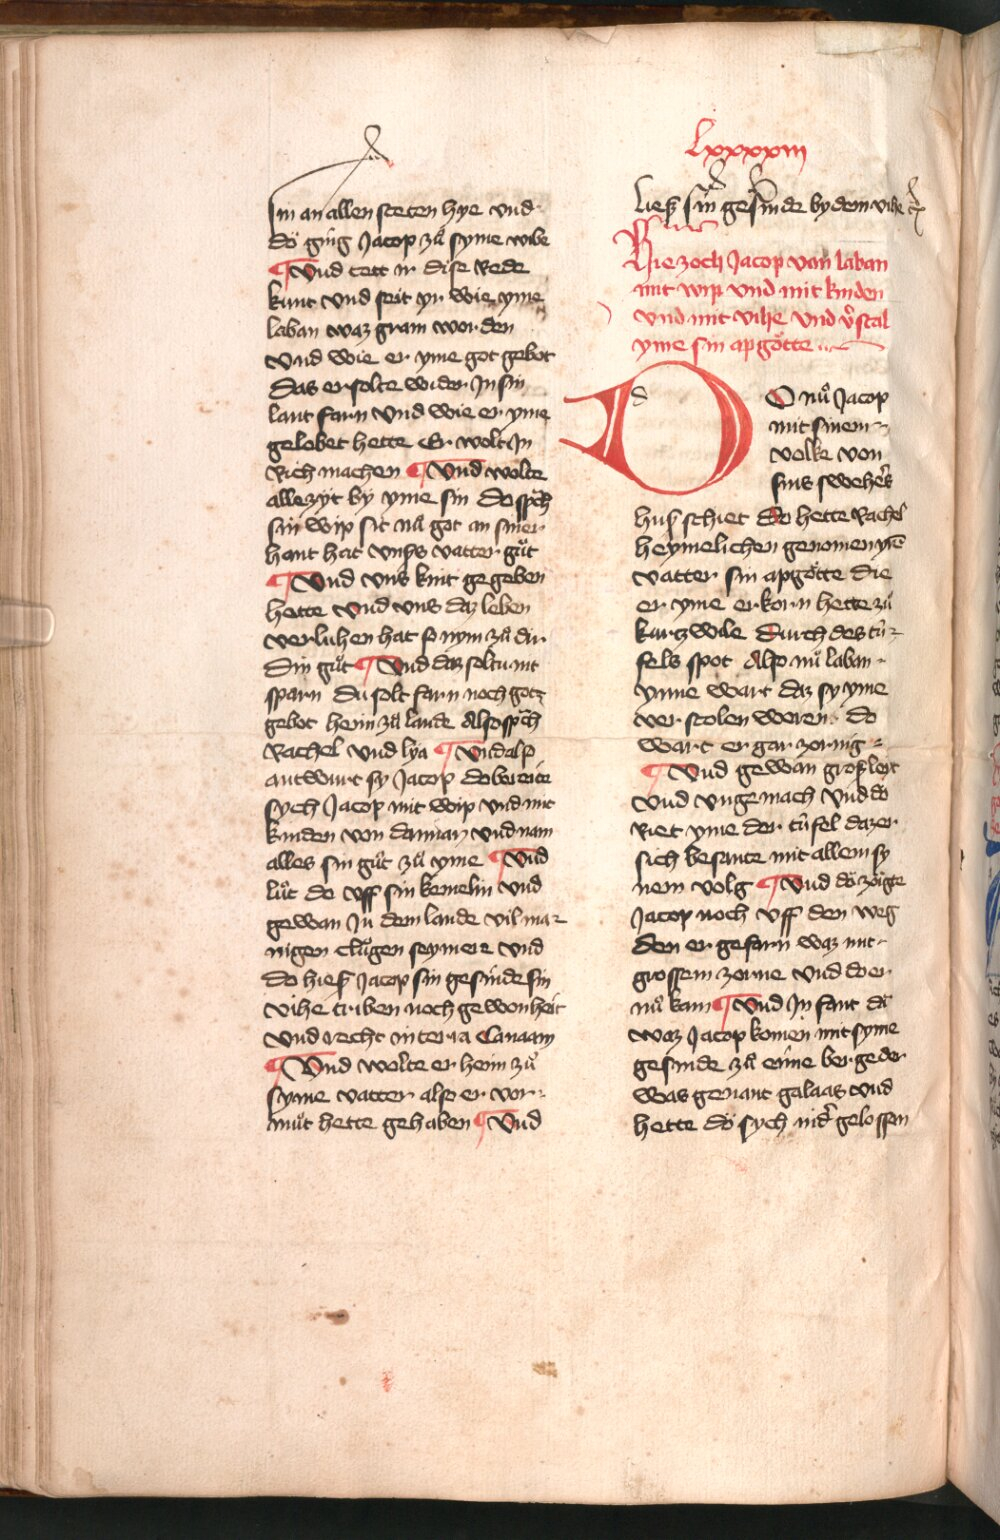 Im an allen steten hye vnd
dö ging Jacop zů syme wibe
¶ Vnd tett ir dise Rede
kunt vnd seit yr wie yme
laban waz gram worden
vnd wie er yme got gebot
Das er solte wider In sin
lant farn vnd wie er yme
gelobet hette Er wolt In
Rich machen ¶ Vnd wolte
alle zÿt by yme sin do sp̄ch
sin wip sit nů got in siner
hant hat vnsß vatter gůt
¶ Vnd vns kint gegeben
hette vnd vns daz leben
verluhen hat so nym zů dir
din gůt ¶ Vnd daz soltu nit
sparn du solt farn noch gotz
gebot heim zů lande Also sp̄ch
Rachel vnd lya ¶ Vnd also
antwurt sy Jacop do bereite
sych Jacop mit wip vnd mit
kinden von dannan vnd nam
alles sin gůt zů yme ¶ Vnd
lůt do vff sin kemelin vnd
gewan In dem lande vil ma-
nigen clůgen seymere vnd
do hieß Jacop sin gesinde sin
vihe triben noch gewonheit
vnd recht in terra Canaam
¶ Vnd wolte er heim zů
syme vatter also er vor-
můt hette gehaben ¶ Vnd
lxxxxiii
ließ sin gesinde by dem vihe
Hie zoch Jacop von laban
mit wip vnd mit kinden
vnd mit vihe vnd v̓stal
yme sin apgötte
DO nů Jacop
mit sinem
volke von
sins swehers
huß schiet do hette Rachel
heymelichen genomen yrē
vatter sin apgötte die
er yme erkorn hette zů
kurtzwile durch des tü-
fels spot Also nů laban
ynne wart daz sy yme
verstolen woren do
wart er gar zornig
¶ Vnd gewan groß leit
vnd vngemach vnd dö
Riet yme der tüfel daz er
sich besante mit allem sy
nem volg ¶ Vnd dö zöigte
Jacop noch vff den weg
den er gefarn waz mit
grossem zorne vnd do er
nů kam ¶ Vnd In fant dö
waz Jacop komen mit syme
gesinde zů eime berge der
was genant galaas vnd
hette dö sych nid̓ gelossen